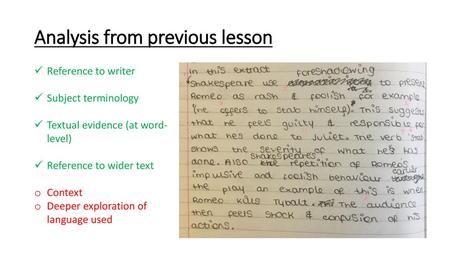 Analysis from previous lesson
✓ Reference to writer
✓ Subject terminology
✓ Textual evidence (at word-
level)
✓ Reference to wider text
o Context
o Deeper exploration of
language used
In this extract foreshadowing
Shakespeare use to present
Romeo as rash & foolish for example
(he offers to stab himself). This suggests
that he feels guilty & responsible for
what hes done to Juliet. The verb 'stab'
shows the severity of what he's has
done. Also Shakespeares repetition of Romeos
impulsive and foolish behaviour earlier
the play an example of this is when
Romeo kills Tybalt. The audience
then feels shock & confusion of his
actions.